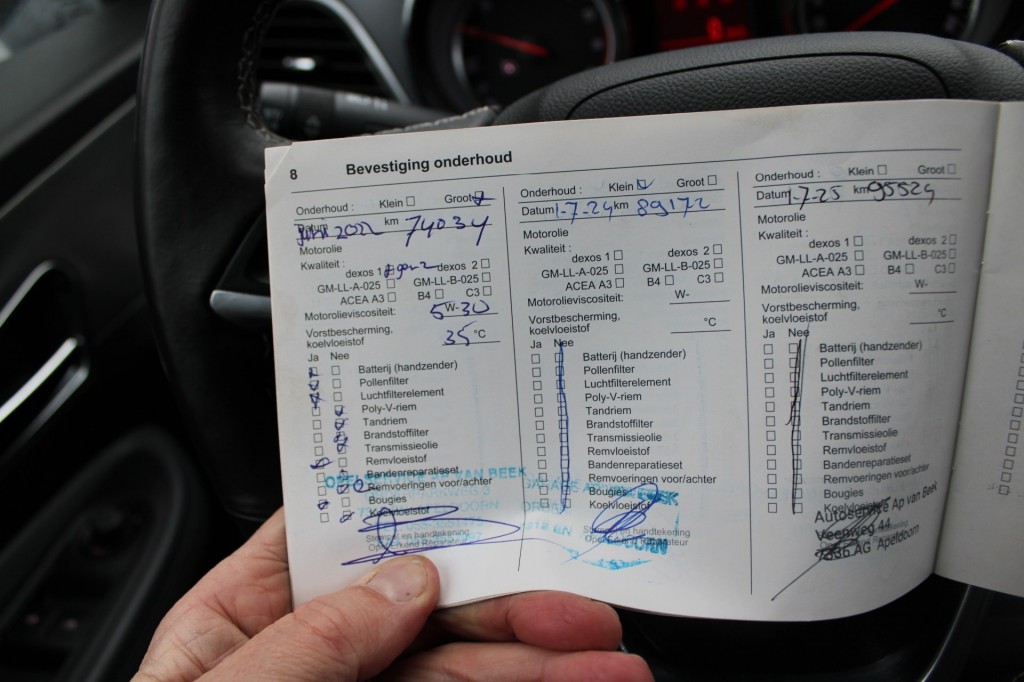 8 Bevestiging onderhoud
Onderhoud : Klein ☐ Groot ☑
Datum juni 2022 km 74034
Motorolie
Kwaliteit :
dexos 1 ☐ gen2 dexos 2 ☐
GM-LL-A-025 ☐ GM-LL-B-025 ☐
ACEA A3 ☐ B4 ☐ C3 ☐
Motorolieviscositeit: 5W-30
Vorstbescherming,
koelvloeistof 35 °C
Ja Nee
Batterij (handzender)
Pollenfilter
Luchtfilterelement
Poly-V-riem
Tandriem
Brandstoffilter
Transmissieolie
Remvloeistof
Bandenreparatieset
Remvoeringen voor/achter
Bougies
Koelvloeistof
Stempel en handtekening
VAN BEEK
Onderhoud : Klein ☑ Groot ☐
Datum 1-7-24 km 89172
Motorolie
Kwaliteit :
dexos 1 ☐ dexos 2 ☐
GM-LL-A-025 ☐ GM-LL-B-025 ☐
ACEA A3 ☐ B4 ☐ C3 ☐
Motorolieviscositeit: W-
Vorstbescherming,
koelvloeistof °C
Ja Nee
Batterij (handzender)
Pollenfilter
Luchtfilterelement
Poly-V-riem
Tandriem
Brandstoffilter
Transmissieolie
Remvloeistof
Bandenreparatieset
Remvoeringen voor/achter
Bougies
Koelvloeistof
GARAGE
BEEK
Onderhoud : Klein ☐ Groot ☐
Datum 1-7-25 km 95524
Motorolie
Kwaliteit :
dexos 1 ☐ dexos 2 ☐
GM-LL-A-025 ☐ GM-LL-B-025 ☐
ACEA A3 ☐ B4 ☐ C3 ☐
Motorolieviscositeit: W-
Vorstbescherming,
koelvloeistof °C
Ja Nee
Batterij (handzender)
Pollenfilter
Luchtfilterelement
Poly-V-riem
Tandriem
Brandstoffilter
Transmissieolie
Remvloeistof
Bandenreparatieset
Remvoeringen voor/achter
Bougies
Koelvloeistof
Autoservice Ap van Beek
Veenweg 44
7336 AG Apeldoorn